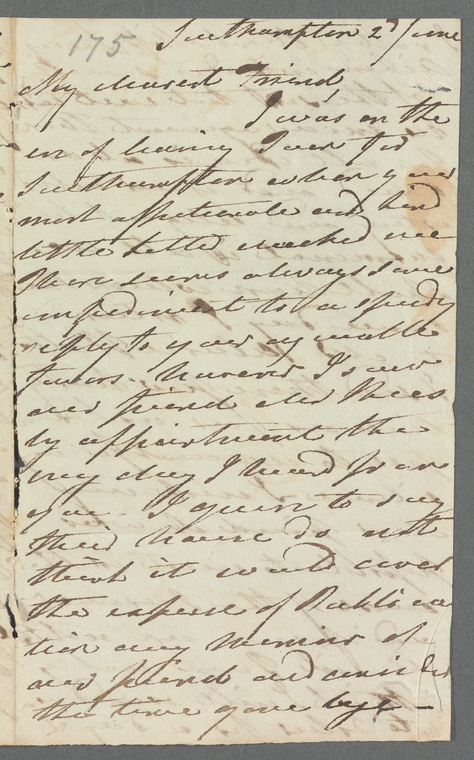 175
Southampton 2d June
My dearest Friend
I was on the
eve of leaving Town for
Southampton when your
most affectionate and kind
little letter reached me
There seems always some
impediment to a speedy
reply to your agreeable
favors. however I saw
our friend Rees
by appointment the
very day I heard from
you. I grieve to say
their house do not
think it would cover
the expense of Publica
tion any Memoir of
our friend and consider
the time gone by